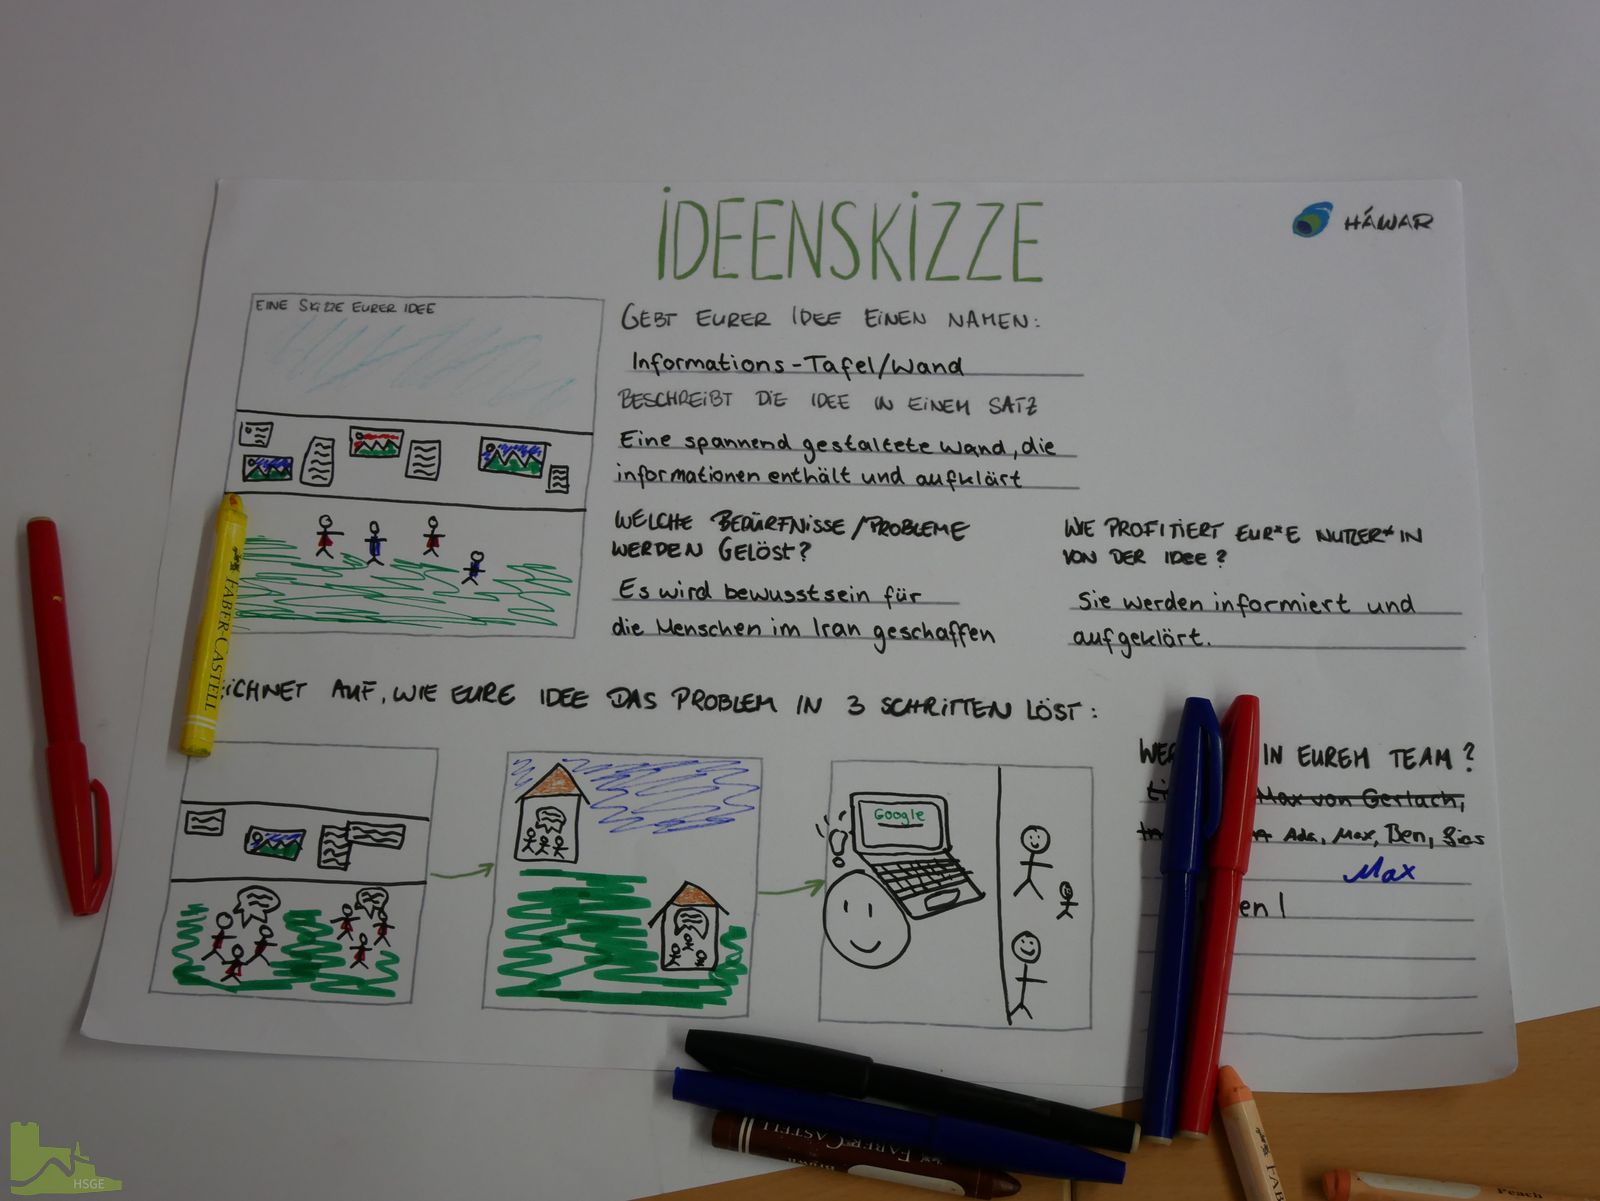 IDEENSKIZZE
HÁWAR
EINE SKIZZE EURER IDEE
GEBT EURER IDEE EINEN NAMEN:
Informations-Tafel/Wand
BESCHREIBT DIE IDEE IN EINEM SATZ
Eine spannend gestaltete Wand, die
informationen enthält und aufklärt
WELCHE BEDÜRFNISSE/PROBLEME
WERDEN GELÖST?
Es wird bewusstsein für
die Menschen im Iran geschaffen
WIE PROFITIERT EUR*E NUTZER*IN
VON DER IDEE?
Sie werden informiert und
aufgeklärt.
ICHNET AUF, WIE EURE IDEE DAS PROBLEM IN 3 SCHRITTEN LÖST:
Google
WE IN EUREM TEAM?
Max von Gerlach,
Ada, Max, Ben,
Max
en!
FABER-CASTELL
FABER-CASTELL
Brown
FAB
Peach
HSGE